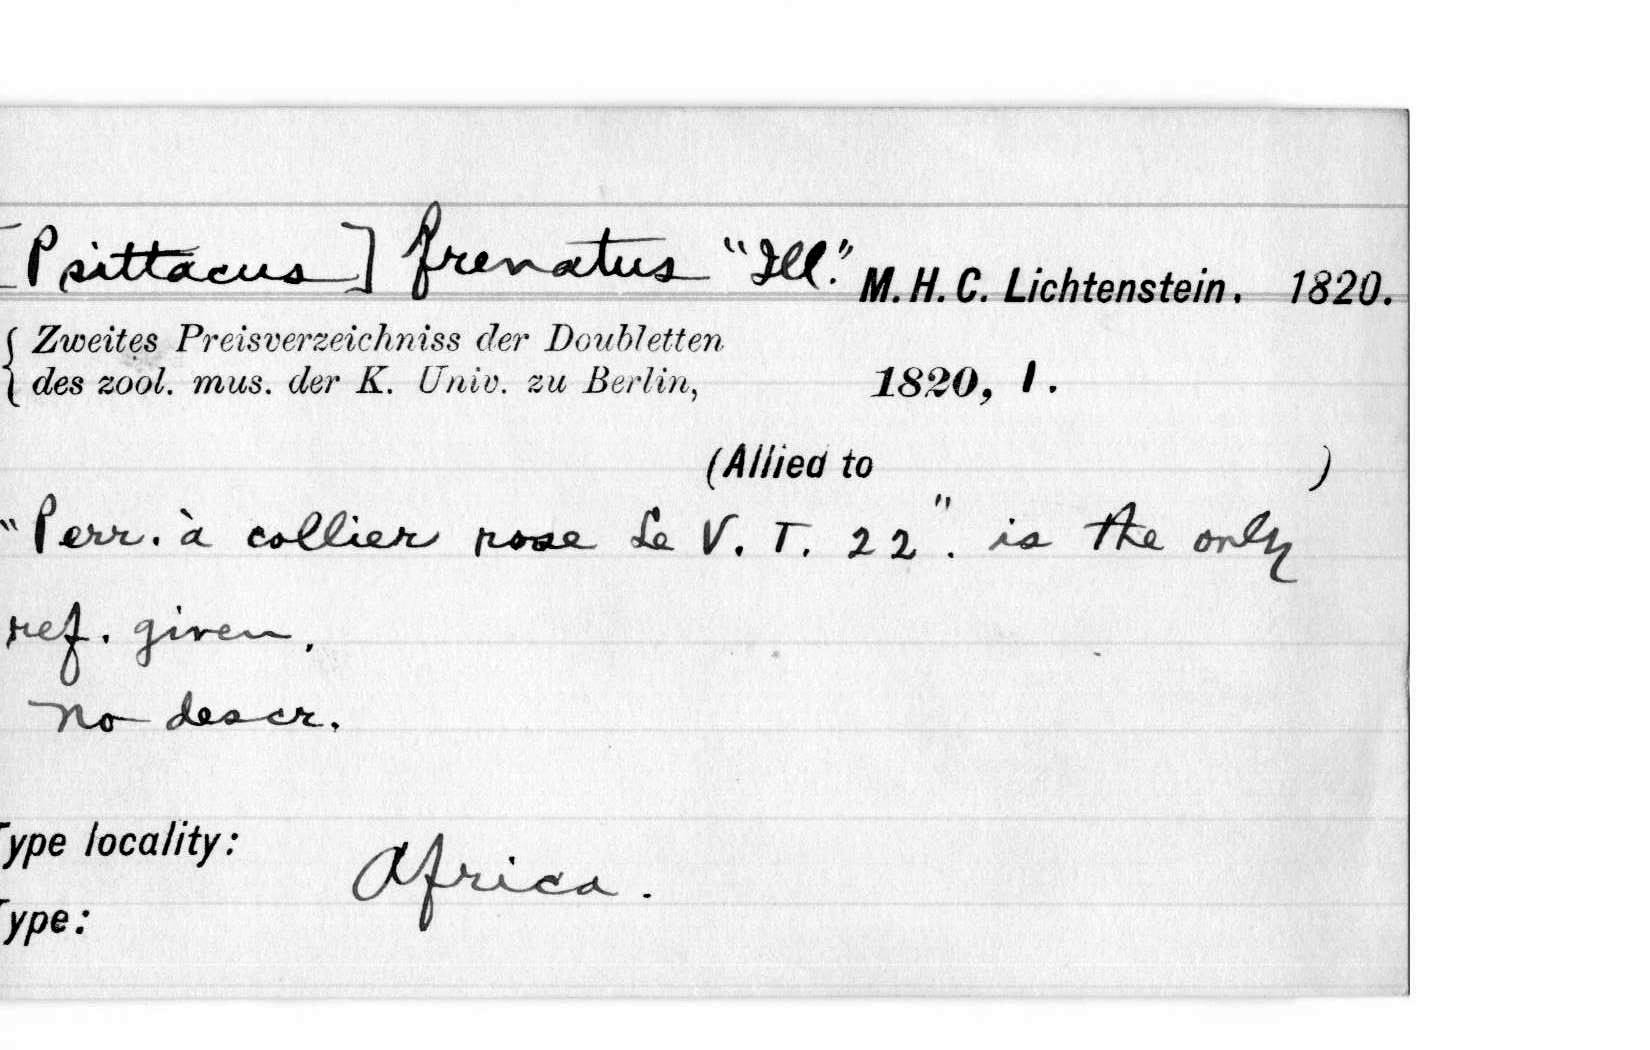 [Psittacus] frenatus "Ill." M. H. C. Lichtenstein. 1820.
{ Zweites Preisverzeichniss der Doubletten
des zool. mus. der K. Univ. zu Berlin, 1820, 1.
(Allied to )
"Perr. à collier rose Le V. T. 22". is the only
ref. given.
No descr.
Type locality: Africa.
Type: